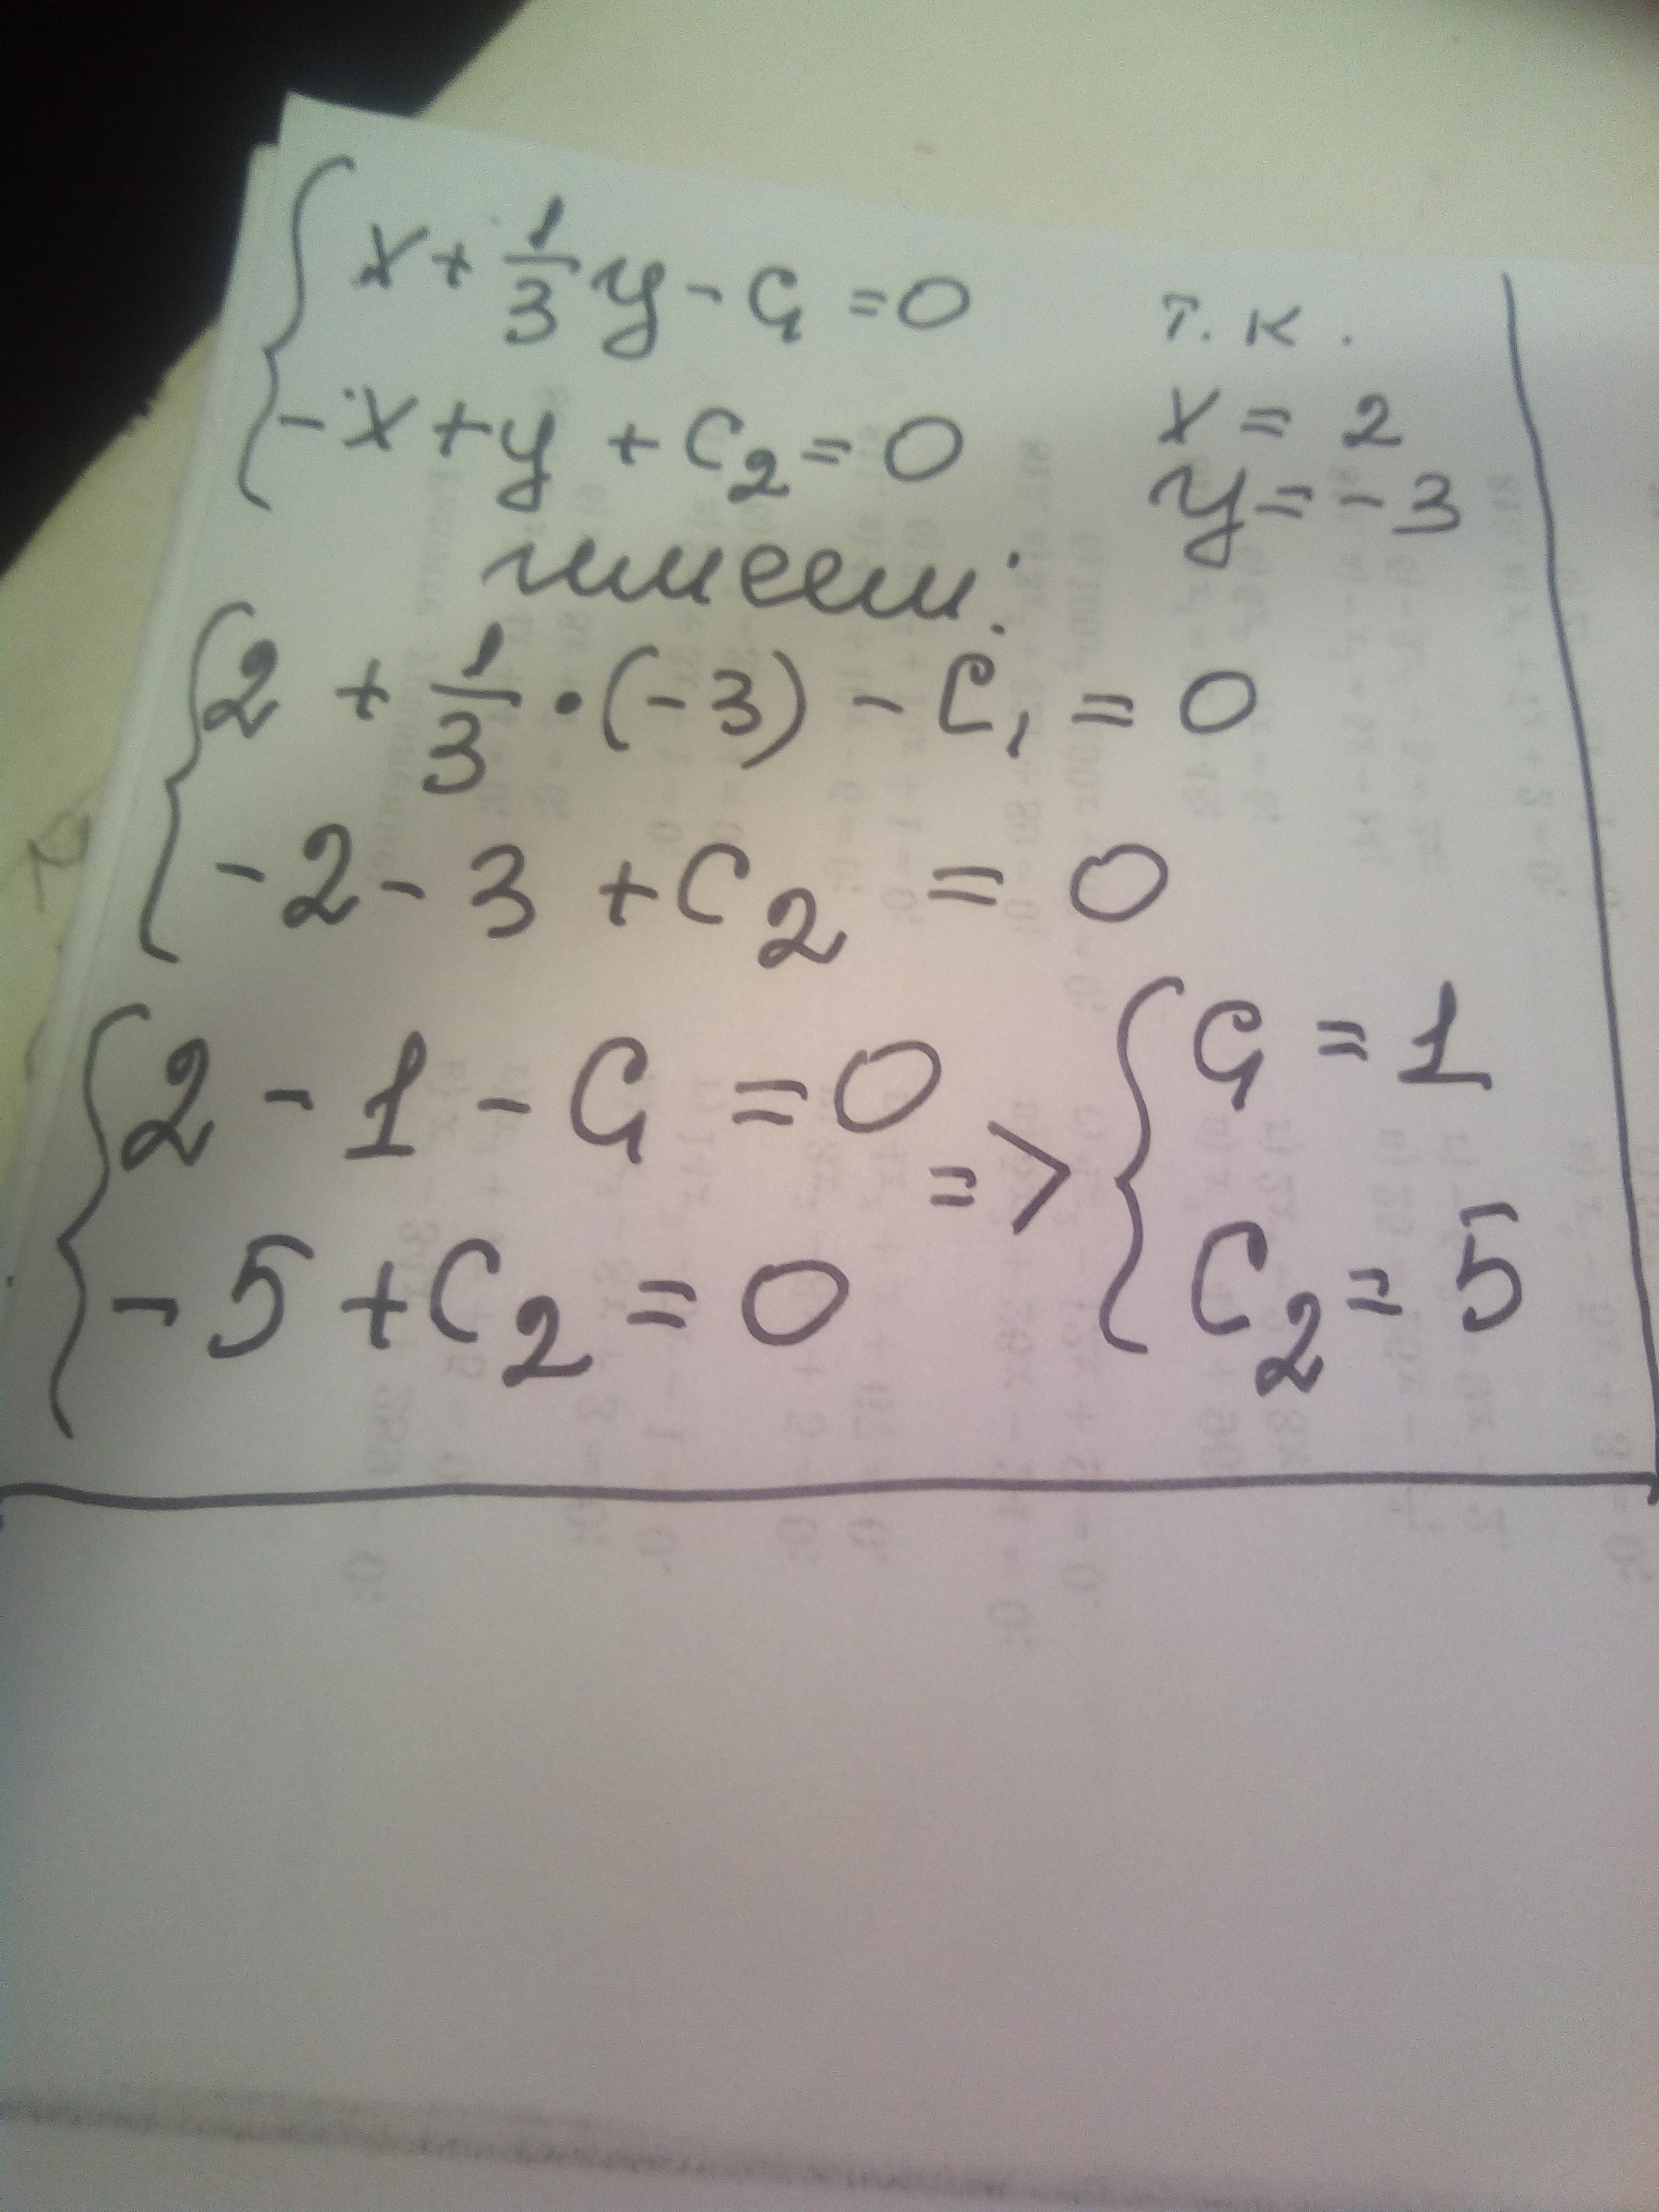 x + 1/3 y - C₁ = 0
-x + y + C₂ = 0
т.к.
x = 2
y = -3
имеем:
2 + 1/3 · (-3) - C₁ = 0
-2 - 3 + C₂ = 0
2 - 1 - C₁ = 0
-5 + C₂ = 0
=>
C₁ = 1
C₂ = 5